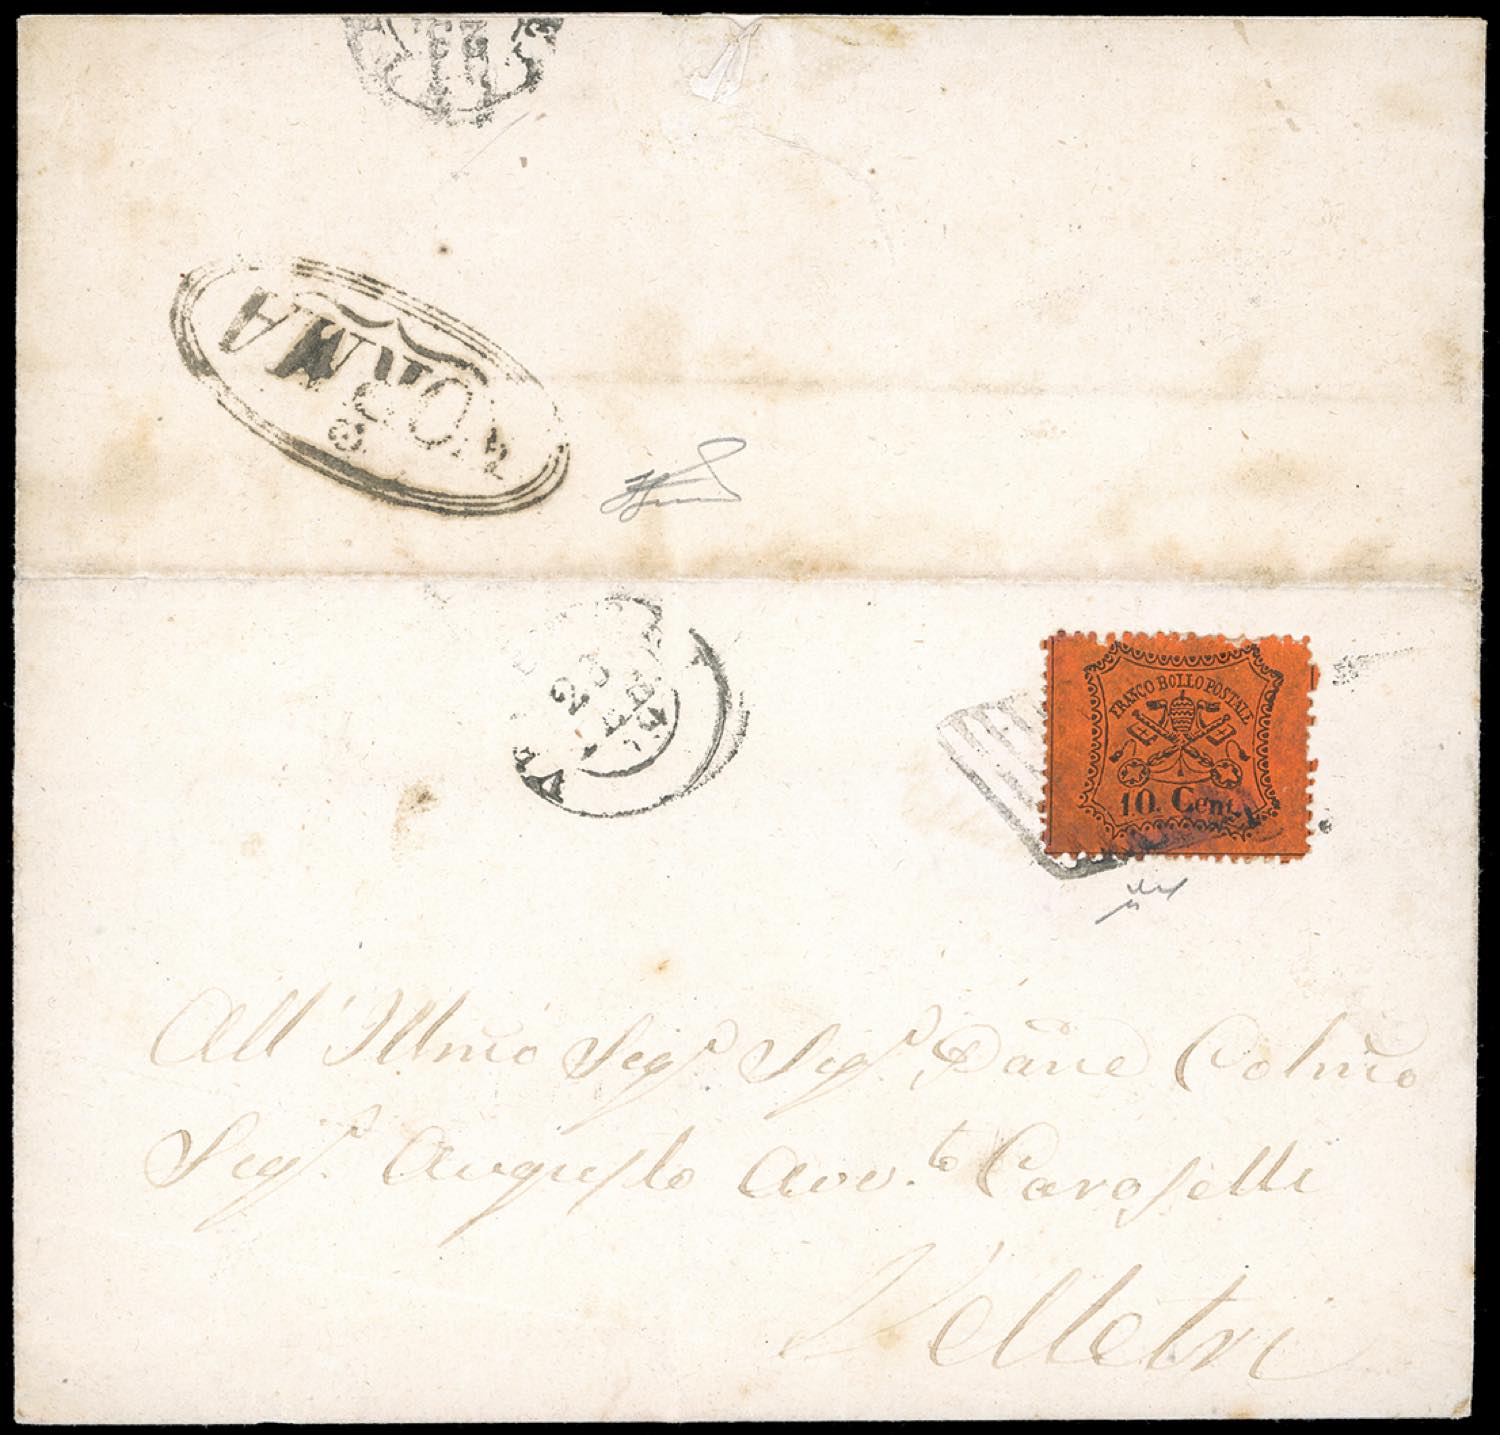 NORMA
23
FEB
FRANCO BOLLO POSTALE
10. Cent.
All' Illmo Sigr Sigr Pane Colmo
Sigr Augusto Avv.to Caroselli
Velletri